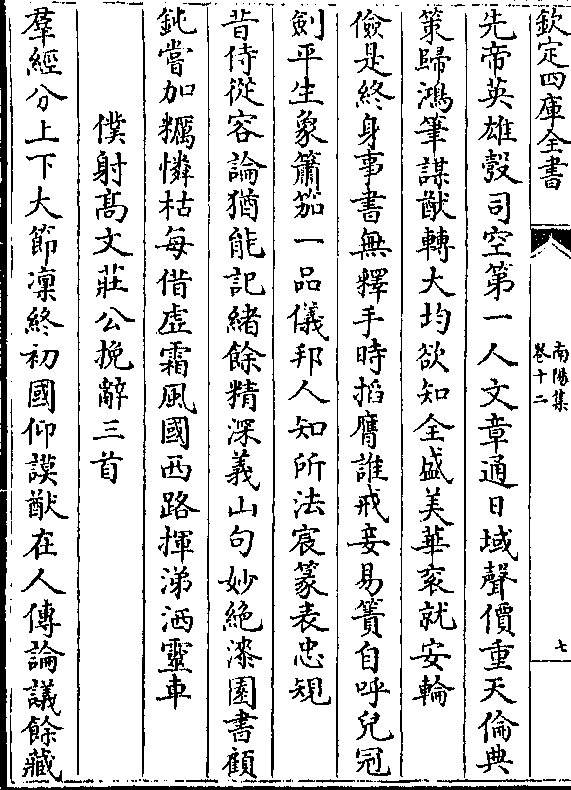 欽定四庫全書
南陽集
卷十二
七
先帝英雄彀司空第一人文章通日域聲價重天倫典
策歸鴻筆謀猷轉大均欲知全盛美華衮就安輪
儉是終身事書無釋手時搯膺誰戒妾易簀自呼兒冠
劍平生象簫笳一品儀邦人知所法宸篆表忠規
昔侍從容論猶能記緒餘精深義山句妙絶漆園書顧
鈍嘗加糲憐枯每借虛霜風國西路揮涕洒靈車
僕射髙文莊公挽辭三首
羣經分上下大節凜終初國仰謨猷在人傳論議餘藏